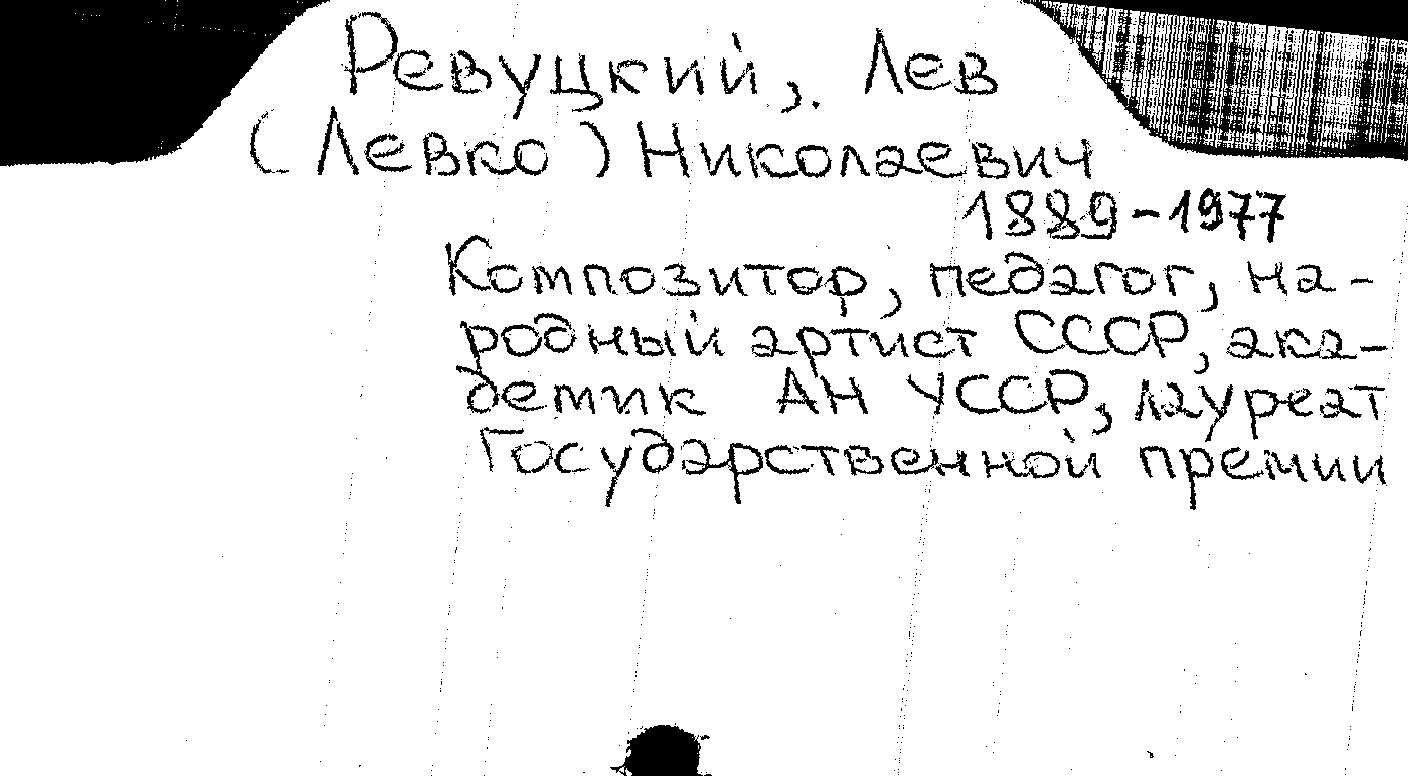 Ревуцкий, Лев
(Левко) Николаевич
1889-1977
Композитор, педагог, на-
родный артист СССР, ака-
демик АН УССР, лауреат
Государственной премии